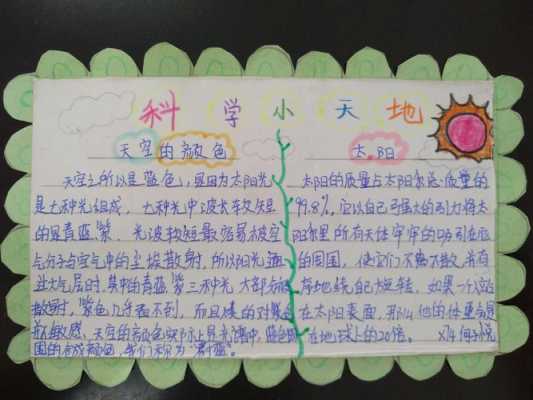 科学小天地
天空的颜色
天空之所以是蓝色，是因为太阳光
是七种光组成，七种光中波长较短
的是青蓝紫，光波较短最容易被空
气分子与空气中的尘埃散射，所以阳光
过大气层时，其中的青、蓝、紫三种光大部分
散射，紫色几乎看不到，而且
敏感，天空的颜色实际上是光谱中蓝色
国的合成颜色，我们称为"蔚蓝"。
太阳
太阳的质量占太阳系总质量的
99.8%，它以自己强大的引力将太
阳系里所有天体牢牢的吸引在
的周围，使它们不离不散，井有
地绕自己旋转，如果一个
在太阳表面，那么他的体重
在地球上的20倍。